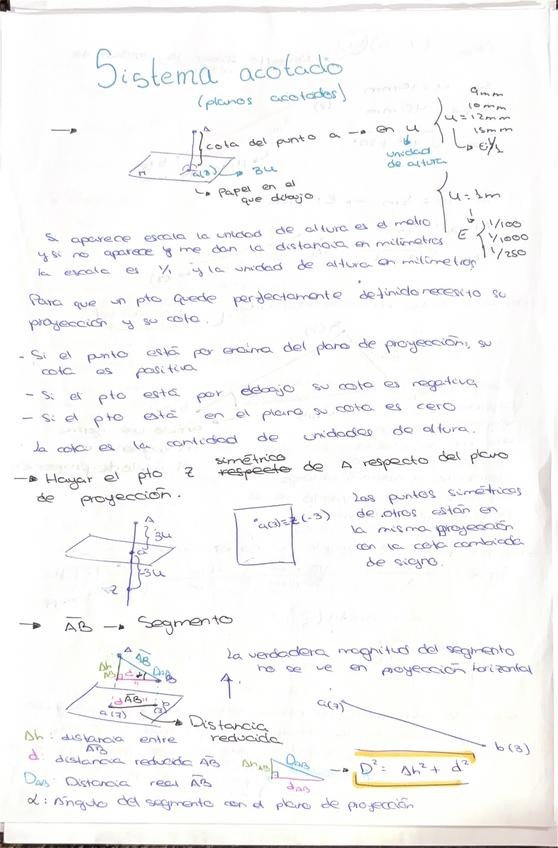 Sistema acotado
(planos acotados)
A
cota del punto a → en u
unidad
de altura
9mm
10mm
u = 12mm
15mm
E: 1/1
a(3)
3u
π
Papel en el
que dibujo.
u = 1m
E
1/100
1/1000
1/250
Si aparece escala la unidad de altura es el metro
y si no aparece y me dan la distancia en milímetros
la escala es 1/1 y la unidad de altura en milímetros
Para que un pto quede perfectamente definido necesito su
proyección y su cota.
- Si el punto está por encima del plano de proyección, su
cota es positiva
- Si el pto está por debajo su cota es negativa
- Si el pto está en el plano su cota es cero
La cota es la cantidad de unidades de altura.
→ Hayar el pto Z simétrico respecto de A respecto del plano
de proyección.
A
3u
a
-3u
Z
a(3)≡z(-3)
Los puntos simétricos
de otros están en
la misma proyección
con la cota cambiada
de signo.
→ AB → Segmento
La verdadera magnitud del segmento
no se ve en proyección horizontal
A
AB
Δh
AB
d
DAB
B
dAB
a(7)
b
(3)
Distancia
reducida
a(7)
b(3)
Δh: distancia entre
AB
d: distancia reducida AB
DAB: Distancia real AB
ΔhAB
DAB
dAB
→ D² = Δh² + d²
α: Ángulo del segmento con el plano de proyección